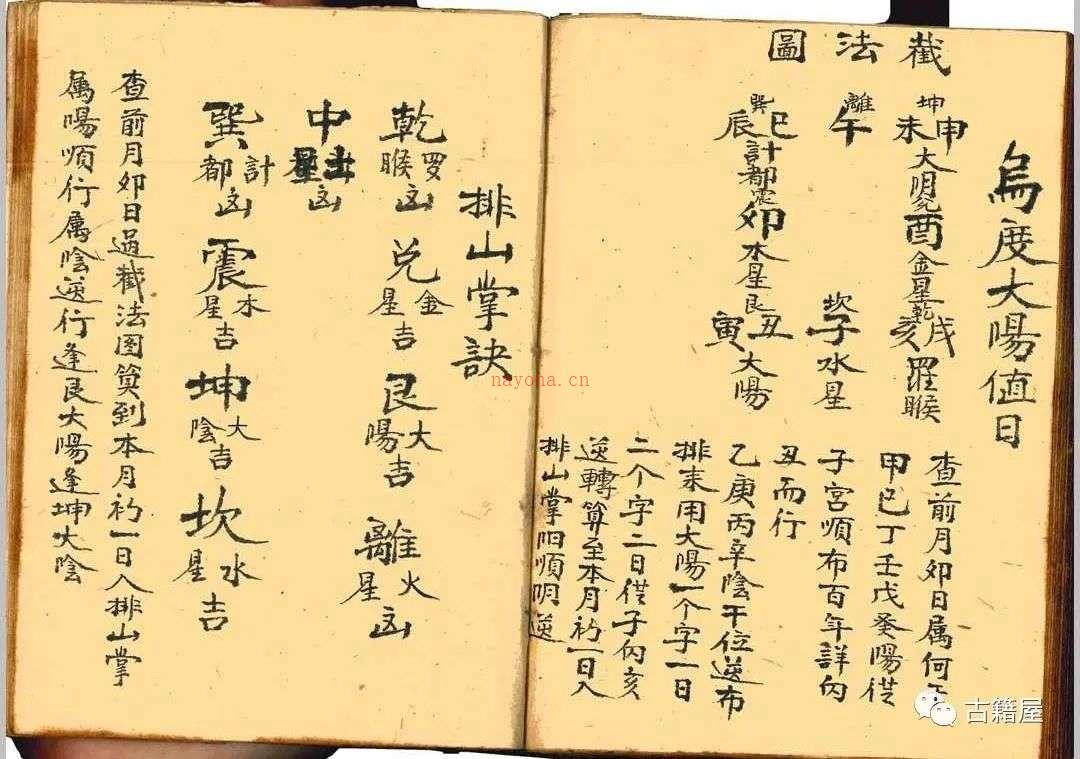 烏度大陽值日
截法圖
坤申未大阴兑酉金星乾戌亥羅睺
離午
坎子水星
巽巳辰計都震卯木星艮丑寅大陽
查前月卯日属何干
甲巳丁壬戊癸陽從
子宮順布百年詳内
丑而行
乙庚丙辛陰干位逆布
排來用大陽一个字一日
二个字二日從子内亥
逆轉算至本月初一日入
排山掌阳順阴逆
排山掌訣
乾罗睺凶 兑金星吉 艮大陽吉 離火星凶
中土星凶
巽計都凶 震木星吉 坤大陰吉 坎水星吉
查前月卯日過截法图算到本月初一日入排山掌
属陽順行属陰逆行逢艮大陽逢坤大陰
nayona.cn
古籍屋